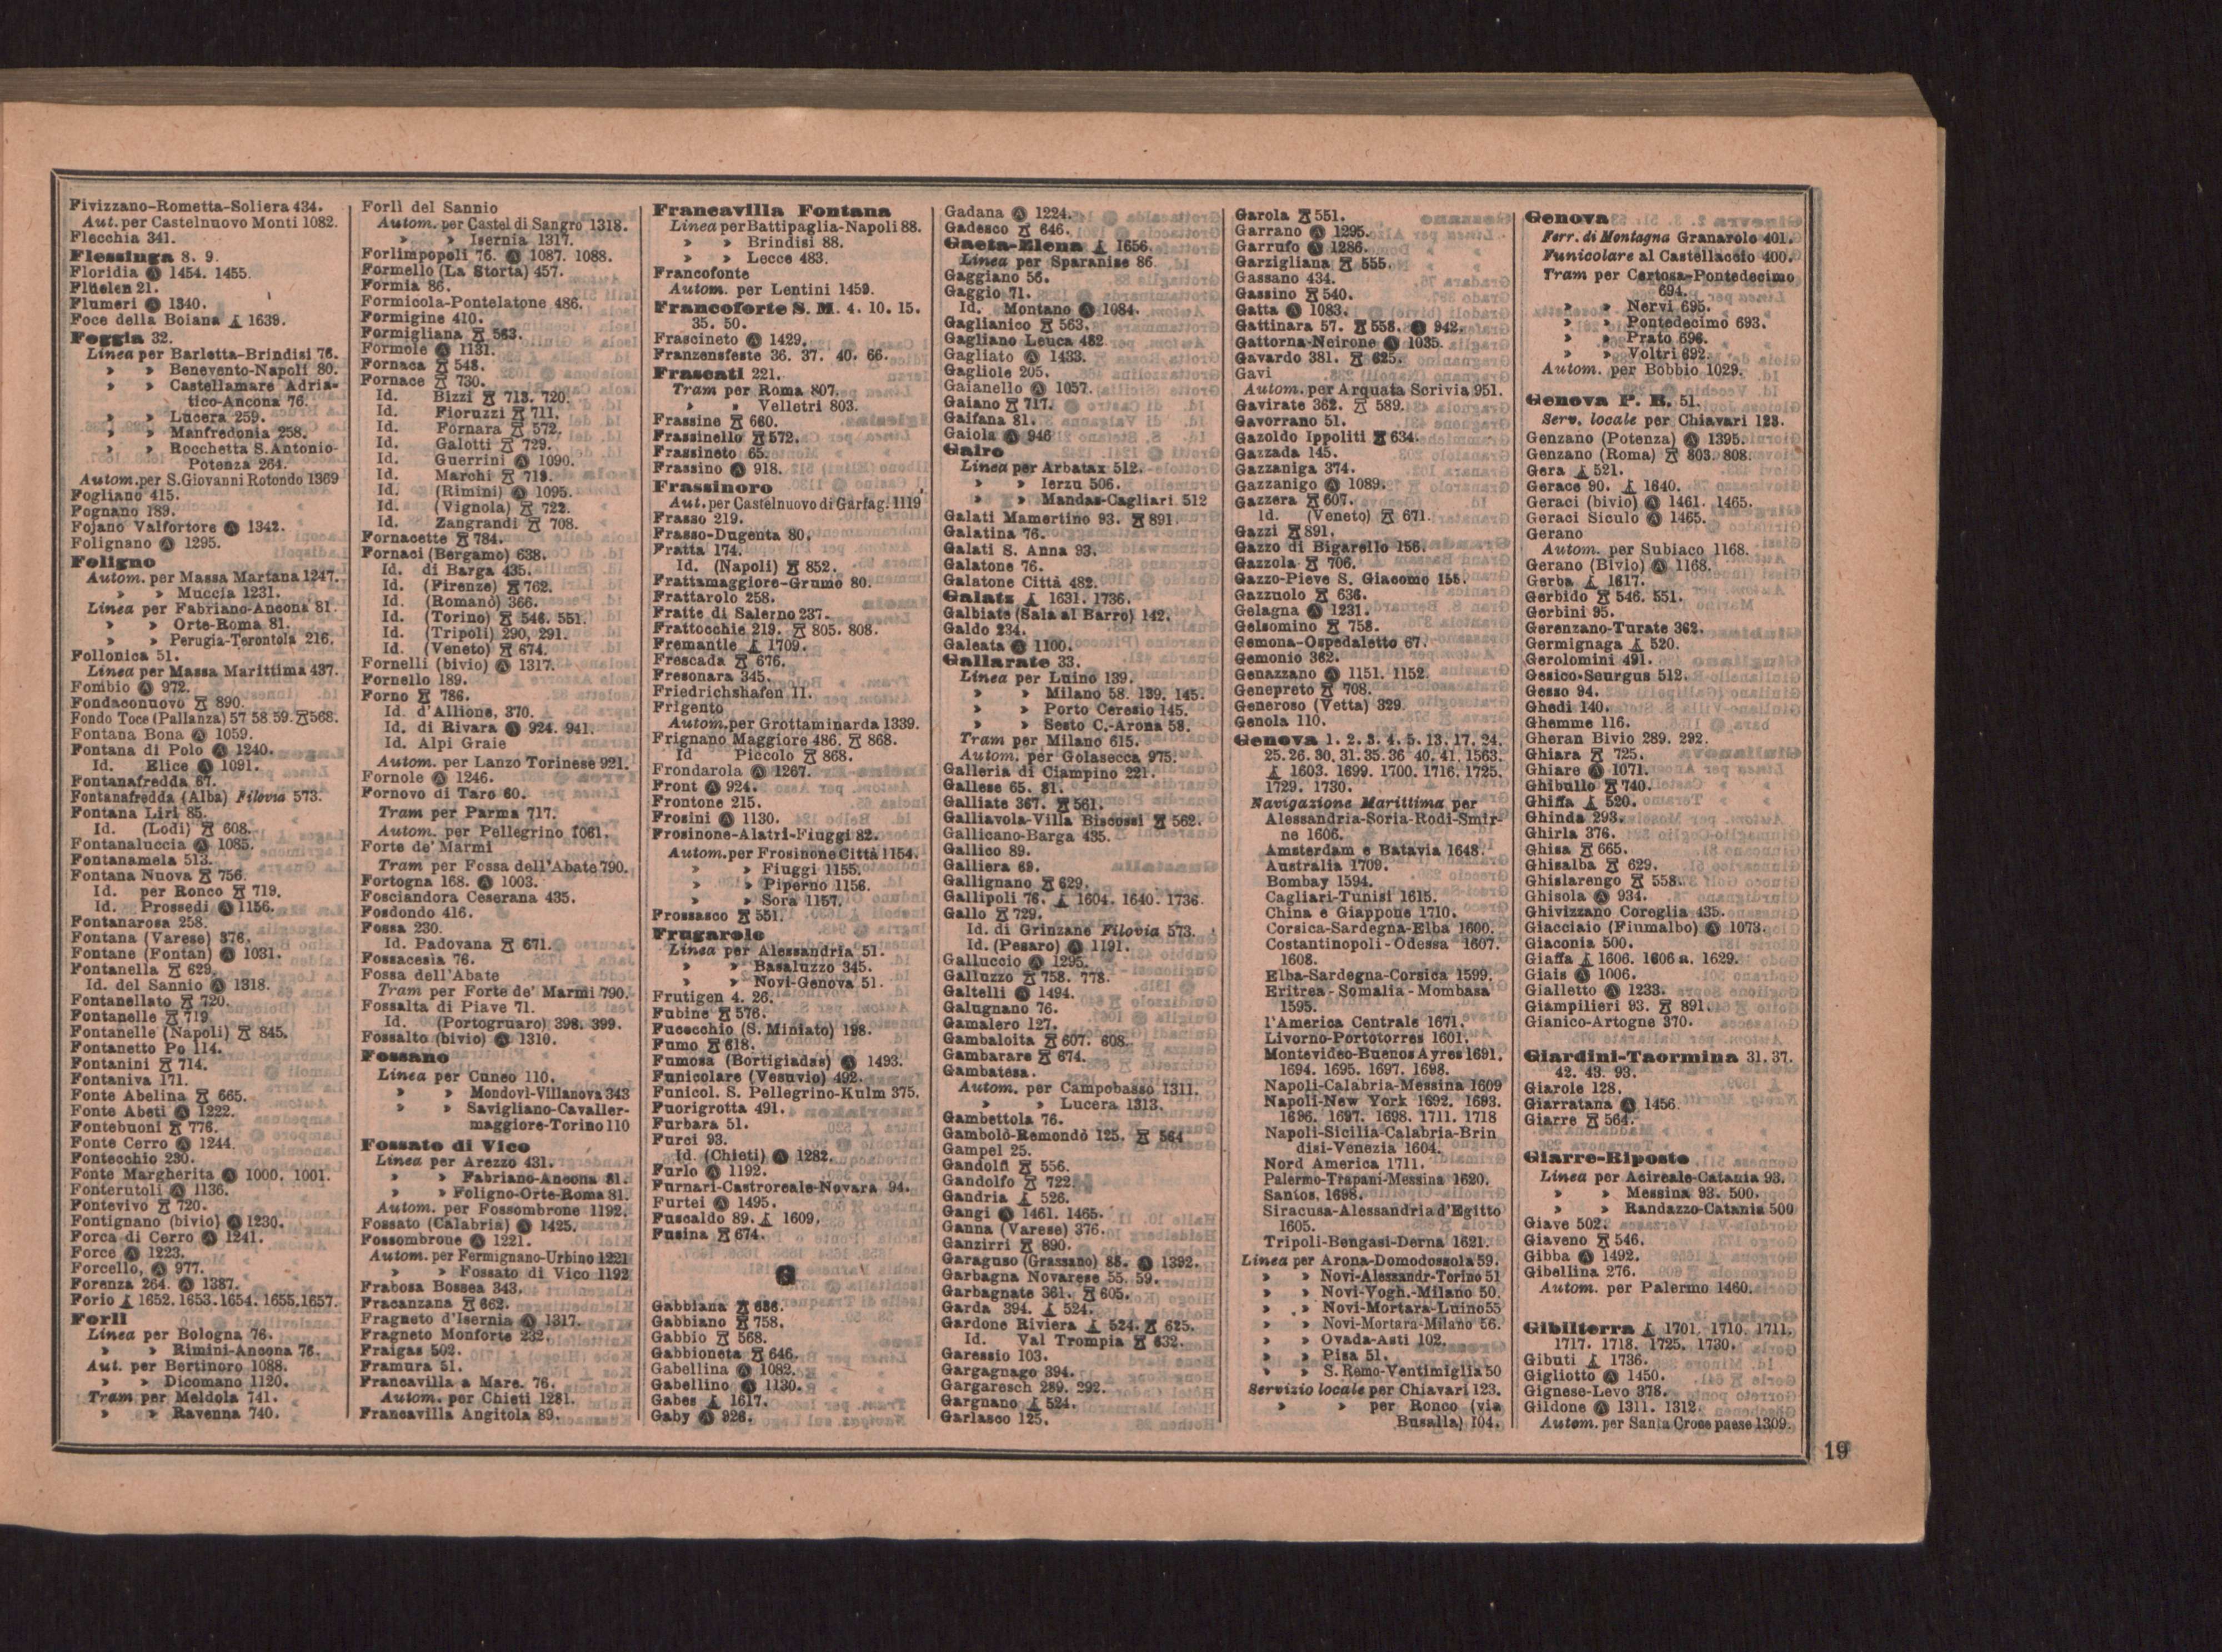 Fivizzano-Rometta-Soliera 434.
Aut. per Castelnuovo Monti 1082.
Flecchia 341.
Flessinga 8. 9.
Floridia Ⓐ 1454. 1455.
Flüelen 21.
Flumeri Ⓐ 1340.
Foce della Boiana 1639.
Foggia 32.
Linea per Barletta-Brindisi 76.
» » Benevento-Napoli 80.
» » Castellamare Adria-
tico-Ancona 76.
» » Lucera 259.
» » Manfredonia 258.
» » Rocchetta S. Antonio-
Potenza 264.
Autom. per S. Giovanni Rotondo 1369
Fogliano 415.
Fognano 189.
Fojano Valfortore Ⓐ 1342.
Folignano Ⓐ 1295.
Foligno
Autom. per Massa Martana 1247.
» » Muccia 1231.
Linea per Fabriano-Ancona 81.
» » Orte-Roma 81.
» » Perugia-Terontola 216.
Follonica 51.
Linea per Massa Marittima 437.
Fombio Ⓐ 972.
Fondaconuovo 890.
Fondo Toce (Pallanza) 57 58 59. 568.
Fontana Bona Ⓐ 1059.
Fontana di Polo Ⓐ 1240.
Id. Elice Ⓐ 1091.
Fontanafredda 67.
Fontanafredda (Alba) Filovia 573.
Fontana Liri 85.
Id. (Lodi) 608.
Fontanaluccia Ⓐ 1085.
Fontanamela 513.
Fontana Nuova 756.
Id. per Ronco 719.
Id. Prossedi Ⓐ 1156.
Fontanarosa 258.
Fontana (Varese) 376.
Fontane (Fontan) Ⓐ 1031.
Fontanella 629.
Id. del Sannio Ⓐ 1318.
Fontanellato 720.
Fontanelle 719.
Fontanelle (Napoli) 845.
Fontanetto Po 114.
Fontanini 714.
Fontaniva 171.
Fonte Abelina 665.
Fonte Abeti Ⓐ 1222.
Fontebuoni 776.
Fonte Cerro Ⓐ 1244.
Fontecchio 230.
Fonte Margherita Ⓐ 1000. 1001.
Fonterutoli Ⓐ 1136.
Fontevivo 720.
Fontignano (bivio) Ⓐ 1230.
Forca di Cerro Ⓐ 1241.
Force Ⓐ 1223.
Forcello, Ⓐ 977.
Forenza 264. Ⓐ 1387.
Forio 1652. 1653. 1654. 1655. 1657.
Forlì
Linea per Bologna 76.
» » Rimini-Ancona 76.
Aut. per Bertinoro 1088.
» » Dicomano 1120.
Tram per Meldola 741.
» » Ravenna 740.
Forlì del Sannio
Autom. per Castel di Sangro 1318.
» » Isernia 1317.
Forlimpopoli 76. Ⓐ 1087. 1088.
Formello (La Storta) 457.
Formia 86.
Formicola-Pontelatone 486.
Formigine 410.
Formigliana 563.
Formole Ⓐ 1131.
Fornaca 548.
Fornace 730.
Id. Bizzi 713. 720.
Id. Fioruzzi 711.
Id. Fornara 572.
Id. Galotti 729.
Id. Guerrini Ⓐ 1090.
Id. Marchi 713.
Id. (Rimini) Ⓐ 1095.
Id. (Vignola) 722.
Id. Zangrandi 708.
Fornacette 784.
Fornaci (Bergamo) 638.
Id. di Barga 435.
Id. (Firenze) 762.
Id. (Romanò) 366.
Id. (Torino) 546. 551.
Id. (Tripoli) 290, 291.
Id. (Veneto) 674.
Fornelli (bivio) Ⓐ 1317.
Fornello 189.
Forno 786.
Id. d'Allione, 370.
Id. di Rivara Ⓐ 924. 941.
Id. Alpi Graie
Autom. per Lanzo Torinese 921.
Fornole Ⓐ 1246.
Fornovo di Taro 60.
Tram per Parma 717.
Autom. per Pellegrino 1061.
Forte de' Marmi
Tram per Fossa dell'Abate 790.
Fortogna 168. Ⓐ 1003.
Fosciandora Ceserana 435.
Fosdondo 416.
Fossa 230.
Id. Padovana 671.
Fossacesia 76.
Fossa dell'Abate
Tram per Forte de' Marmi 790.
Fossalta di Piave 71.
Id. (Portogruaro) 398. 399.
Fossalto (bivio) Ⓐ 1310.
Fossano
Linea per Cuneo 110.
» » Mondovì-Villanova 343
» » Savigliano-Cavaller-
maggiore-Torino 110
Fossato di Vico
Linea per Arezzo 431.
» » Fabriano-Ancona 81.
» » Foligno-Orte-Roma 81.
Autom. per Fossombrone 1192.
Fossato (Calabria) Ⓐ 1425.
Fossombrone Ⓐ 1221.
Autom. per Fermignano-Urbino 1221
» » Fossato di Vico 1192
Frabosa Bossea 343.
Fracanzana 662.
Fragneto d'Isernia Ⓐ 1317.
Fragneto Monforte 232.
Fraigas 502.
Framura 51.
Francavilla a Mare. 76.
Autom. per Chieti 1281.
Francavilla Angitola 89.
Francavilla Fontana
Linea per Battipaglia-Napoli 88.
» » Brindisi 88.
» » Lecce 483.
Francofonte
Autom. per Lentini 1459.
Francoforte S. M. 4. 10. 15.
35. 50.
Frascineto Ⓐ 1429.
Franzensfeste 36. 37. 40. 66.
Frascati 221.
Tram per Roma 807.
» » Velletri 803.
Frassine 660.
Frassinello 572.
Frassineto 65.
Frassino Ⓐ 918.
Frassinoro
Aut. per Castelnuovo di Garfag. 1119
Frasso 219.
Frasso-Dugenta 80.
Fratta 174.
Id. (Napoli) 852.
Frattamaggiore-Grumo 80.
Frattarolo 258.
Fratte di Salerno 237.
Frattocchie 219. 805. 808.
Fremantle 1709.
Frescada 676.
Fresonara 345.
Friedrichshafen 11.
Frigento
Autom. per Grottaminarda 1339.
Frignano Maggiore 486. 868.
Id Piccolo 868.
Frondarola Ⓐ 1267.
Front Ⓐ 924.
Frontone 215.
Frosini Ⓐ 1130.
Frosinone-Alatri-Fiuggi 82.
Autom. per Frosinone Città 1154.
» » Fiuggi 1155.
» » Piperno 1156.
» » Sora 1157.
Frossasco 551.
Frugarolo
Linea per Alessandria 51.
» » Basaluzzo 345.
» » Novi-Genova 51.
Frutigen 4. 26.
Fubine 576.
Fucecchio (S. Miniato) 198.
Fumo 618.
Fumosa (Bortigiadas) Ⓐ 1493.
Funicolare (Vesuvio) 492.
Funicol. S. Pellegrino-Kulm 375.
Fuorigrotta 491.
Furbara 51.
Furci 93.
Id. (Chieti) Ⓐ 1282.
Furlo Ⓐ 1192.
Furnari-Castroreale-Novara 94.
Furtei Ⓐ 1495.
Fuscaldo 89. 1609.
Fusina 674.
G
Gabbiana 636.
Gabbiano 758.
Gabbio 568.
Gabbioneta 646.
Gabellina Ⓐ 1082.
Gabellino Ⓐ 1130.
Gabes 1617.
Gaby Ⓐ 926.
Gadana Ⓐ 1224.
Gadesco 646.
Gaeta-Elena 1656.
Linea per Sparanise 86
Gaggiano 56.
Gaggio 71.
Id. Montano Ⓐ 1084.
Gaglianico 563.
Gagliano Leuca 482
Gagliato Ⓐ 1433.
Gagliole 205.
Gaianello Ⓐ 1057.
Gaiano 717.
Gaifana 81.
Gaiola Ⓐ 946
Gairo
Linea per Arbatax 512.
» » Ierzu 506.
» » Mandas-Cagliari 512
Galati Mamertino 93. 891.
Galatina 76.
Galati S. Anna 93.
Galatone 76.
Galatone Città 482.
Galatz 1631. 1736.
Galbiate (Sala al Barro) 142.
Galdo 234.
Galeata Ⓐ 1100.
Gallarate 33.
Linea per Luino 139.
» » Milano 58. 139. 145.
» » Porto Ceresio 145.
» » Sesto C.-Arona 58.
Tram per Milano 615.
Autom. per Golasecca 975.
Galleria di Ciampino 221.
Gallese 65. 81.
Galliate 367. 561.
Galliavola-Villa Biscossi 562.
Gallicano-Barga 435.
Gallico 89.
Galliera 69.
Gallignano 629.
Gallipoli 76. 1604. 1640. 1736.
Gallo 729.
Id. di Grinzane Filovia 573.
Id. (Pesaro) Ⓐ 1191.
Galluccio Ⓐ 1295.
Galluzzo 758. 778.
Galtelli Ⓐ 1494.
Galugnano 76.
Gamalero 127.
Gambaloita 607. 608.
Gambarare 674.
Gambatesa.
Autom. per Campobasso 1311.
» » Lucera 1313.
Gambettola 76.
Gambolò-Remondò 125. 564
Gampel 25.
Gandolfi 556.
Gandolfo 722.
Gandria 526.
Gangi Ⓐ 1461. 1465.
Ganna (Varese) 376.
Ganzirri 890.
Garaguso (Grassano) 88. Ⓐ 1392.
Garbagna Novarese 55. 59.
Garbagnate 361. 605.
Garda 394. 524.
Gardone Riviera 524. 625.
Id. Val Trompia 632.
Garessio 103.
Gargagnago 394.
Gargaresch 289. 292.
Gargnano 524.
Garlasco 125.
Garola 551.
Garrano Ⓐ 1295.
Garrufo Ⓐ 1286.
Garzigliana 555.
Gassano 434.
Gassino 540.
Gatta Ⓐ 1083.
Gattinara 57. 558. Ⓐ 942.
Gattorna-Neirone Ⓐ 1035.
Gavardo 381. 625.
Gavi
Autom. per Arquata Scrivia 951.
Gavirate 362. 589.
Gavorrano 51.
Gazoldo Ippoliti 634.
Gazzada 145.
Gazzaniga 374.
Gazzanigo Ⓐ 1089.
Gazzera 607.
Id. (Veneto) 671.
Gazzi 891.
Gazzo di Bigarello 156.
Gazzola 706.
Gazzo-Pieve S. Giacomo 156.
Gazzuolo 636.
Gelagna Ⓐ 1231.
Gelsomino 758.
Gemona-Ospedaletto 67.
Gemonio 362.
Genazzano Ⓐ 1151. 1152.
Genepreto 708.
Generoso (Vetta) 329.
Genola 110.
Genova 1. 2. 3. 4. 5. 13. 17. 24.
25. 26. 30. 31. 35. 36 40. 41. 1563.
1603. 1699. 1700. 1716. 1725.
1729. 1730.
Navigazione Marittima per
Alessandria-Soria-Rodi-Smir-
ne 1606.
Amsterdam e Batavia 1648.
Australia 1709.
Bombay 1594.
Cagliari-Tunisi 1615.
China e Giappone 1710.
Corsica-Sardegna-Elba 1600.
Costantinopoli-Odessa 1607.
1608.
Elba-Sardegna-Corsica 1599.
Eritrea-Somalia-Mombasa
1595.
l'America Centrale 1671.
Livorno-Portotorres 1601.
Montevideo-Buenos Ayres 1691.
1694. 1695. 1697. 1698.
Napoli-Calabria-Messina 1609
Napoli-New York 1692. 1693.
1696. 1697. 1698. 1711. 1718
Napoli-Sicilia-Calabria-Brin
disi-Venezia 1604.
Nord America 1711.
Palermo-Trapani-Messina 1620.
Santos, 1698.
Siracusa-Alessandria d'Egitto
1605.
Tripoli-Bengasi-Derna 1621.
Linea per Arona-Domodossola 59.
» » Novi-Alessandr-Torino 51
» » Novi-Vogh.-Milano 50.
» » Novi-Mortara-Luino 55
» » Novi-Mortara-Milano 56.
» » Ovada-Asti 102.
» » Pisa 51.
» » S. Remo-Ventimiglia 50
Servizio locale per Chiavari 123.
» » per Ronco (via
Busalla) 104.
Genova
Ferr. di Montagna Granarolo 401.
Funicolare al Castellaccio 400.
Tram per Certosa-Pontedecimo
694.
» » Nervi 695.
» » Pontedecimo 693.
» » Prato 696.
» » Voltri 692.
Autom. per Bobbio 1029.
Genova P. B. 51.
Serv. locale per Chiavari 123.
Genzano (Potenza) Ⓐ 1395.
Genzano (Roma) 803. 808.
Gera 521.
Gerace 90. 1640.
Geraci (bivio) Ⓐ 1461. 1465.
Geraci Siculo Ⓐ 1465.
Gerano
Autom. per Subiaco 1168.
Gerano (Bivio) Ⓐ 1168.
Gerba 1617.
Gerbido 546. 551.
Gerbini 95.
Gerenzano-Turate 362.
Germignaga 520.
Gerolomini 491.
Gesico-Seurgus 512.
Gesso 94.
Ghedi 140.
Ghemme 116.
Gheran Bivio 289. 292.
Ghiara 725.
Ghiare Ⓐ 1071.
Ghibullo 740.
Ghiffa 520.
Ghinda 293.
Ghirla 376.
Ghisa 665.
Ghisalba 629.
Ghislarengo 558.
Ghisola Ⓐ 934.
Ghivizzano Coreglia 435.
Giacciaio (Fiumalbo) Ⓐ 1073.
Giaconia 500.
Giaffa 1606. 1606 a. 1629.
Giais Ⓐ 1006.
Gialletto Ⓐ 1233.
Giampilieri 93. 891.
Gianico-Artogne 370.
Giardini-Taormina 31. 37.
42. 43. 93.
Giarole 128.
Giarratana Ⓐ 1456.
Giarre 564.
Giarre-Riposto
Linea per Acireale-Catania 93.
» » Messina 93. 500.
» » Randazzo-Catania 500
Giave 502.
Giaveno 546.
Gibba Ⓐ 1492.
Gibellina 276.
Autom. per Palermo 1460.
Gibilterra 1701. 1710. 1711.
1717. 1718. 1725. 1730.
Gibuti 1736.
Gigliotto Ⓐ 1450.
Gignese-Levo 378.
Gildone Ⓐ 1311. 1312.
Autom. per Santa Croce paese 1309.
19